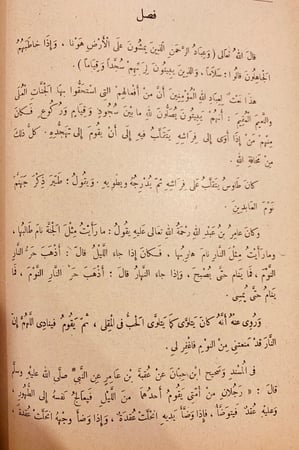 فصل
قالَ اللهُ تعالى (وَعِبَادُ الرَّحْمَنِ الَّذِينَ يَمْشُونَ عَلَى الْأَرْضِ هَوْنًا، وَإِذَا خَاطَبَهُمُ
الْجَاهِلُونَ قَالُوا: سَلَامًا، وَالَّذِينَ يَبِيتُونَ لِرَبِّهِمْ سُجَّدًا وَقِيَامًا).
هذا نَعْتٌ لِعِبَادِ اللهِ المُؤْمِنِينَ أَنَّ مِنْ أَفْعَالِهِمِ الَّتِي اسْتَحَقُّوا بِهَا الْجَنَّاتِ الْعُلَى
والنَّعِيمَ الْمُقِيمَ: أَنَّهُمْ يَبِيتُونَ يُصَلُّونَ لِلهِ مَا بَيْنَ سُجُودٍ وَقِيَامٍ وَرُكُوعٍ، فَكَانَ
مِنْهُمْ مَنْ إِذَا أَوَى إِلَى فِرَاشِهِ يَتَقَلَّبُ فِيهِ إِلَى أَنْ يَقُومَ إِلَى تَهَجُّدِهِ. كلُّ ذلك
مِنْ مَخَافَةِ اللهِ.
كانَ طَاوُسُ يَتَقَلَّبُ عَلَى فِرَاشِهِ ثُمَّ يُدْرِجُهُ ويطويه. وَيَقُولُ: طَيَّرَ ذِكْرُ جَهَنَّمَ
نَوْمَ العَابِدِينَ.
وكانَ عامِرُ بنُ عَبْدِ اللهِ رَحْمَةُ اللهِ تعالى عليهِ يَقُولُ: مَا رَأَيْتُ مِثْلَ الْجَنَّةِ نَامَ طَالِبُهَا،
وما رَأَيْتُ مِثْلَ النَّارِ نَامَ هَارِبُهَا، فَكَانَ إِذَا جاءَ اللَّيْلُ قَالَ: أَذْهَبَ حَرُّ النَّارِ
النَّوْمَ، فَمَا يَنَامُ حَتَّى يُصْبِحَ، وَإِذَا جاءَ النَّهَارُ قَالَ: أَذْهَبَ حَرُّ النَّارِ النَّوْمَ، فَمَا
يَنَامُ حَتَّى يُمْسِيَ.
وَرُوِيَ عنْهُ أَنَّهُ كانَ يَتَلَوَّى كَمَا يَتَلَوَّى الْحَبُّ فِي الْمِقْلَى، ثُمَّ يَقُومُ فينادِى اللَّهُمَّ إنَّ
النَّارَ قَدْ مَنَعَتْنِي مِنَ النومِ فاغْفِرْ لِي.
فى المُسْنَدِ وَصَحِيحِ ابْنِ حِبَّانَ عَنْ عُقْبَةَ بْنِ عَامِرٍ عنِ النَّبِيِّ صَلَّى اللهُ عليهِ وسلَّمَ
قالَ: «رَجُلَانِ مِنْ أُمَّتِي يَقُومُ أَحَدُهُمَا مِنَ اللَّيْلِ فَيُعَالِجُ نَفْسَهُ إِلَى الطَّهُورِ،
وعَلَيْهِ عُقَدٌ فَيَتَوَضَّأُ، فَإِذَا وَضَّأَ يَدَيْهِ انْحَلَّتْ عُقْدَةٌ، وَإِذَا وَضَّأَ وَجْهَهُ انْحَلَّتْ عُقْدَةٌ،